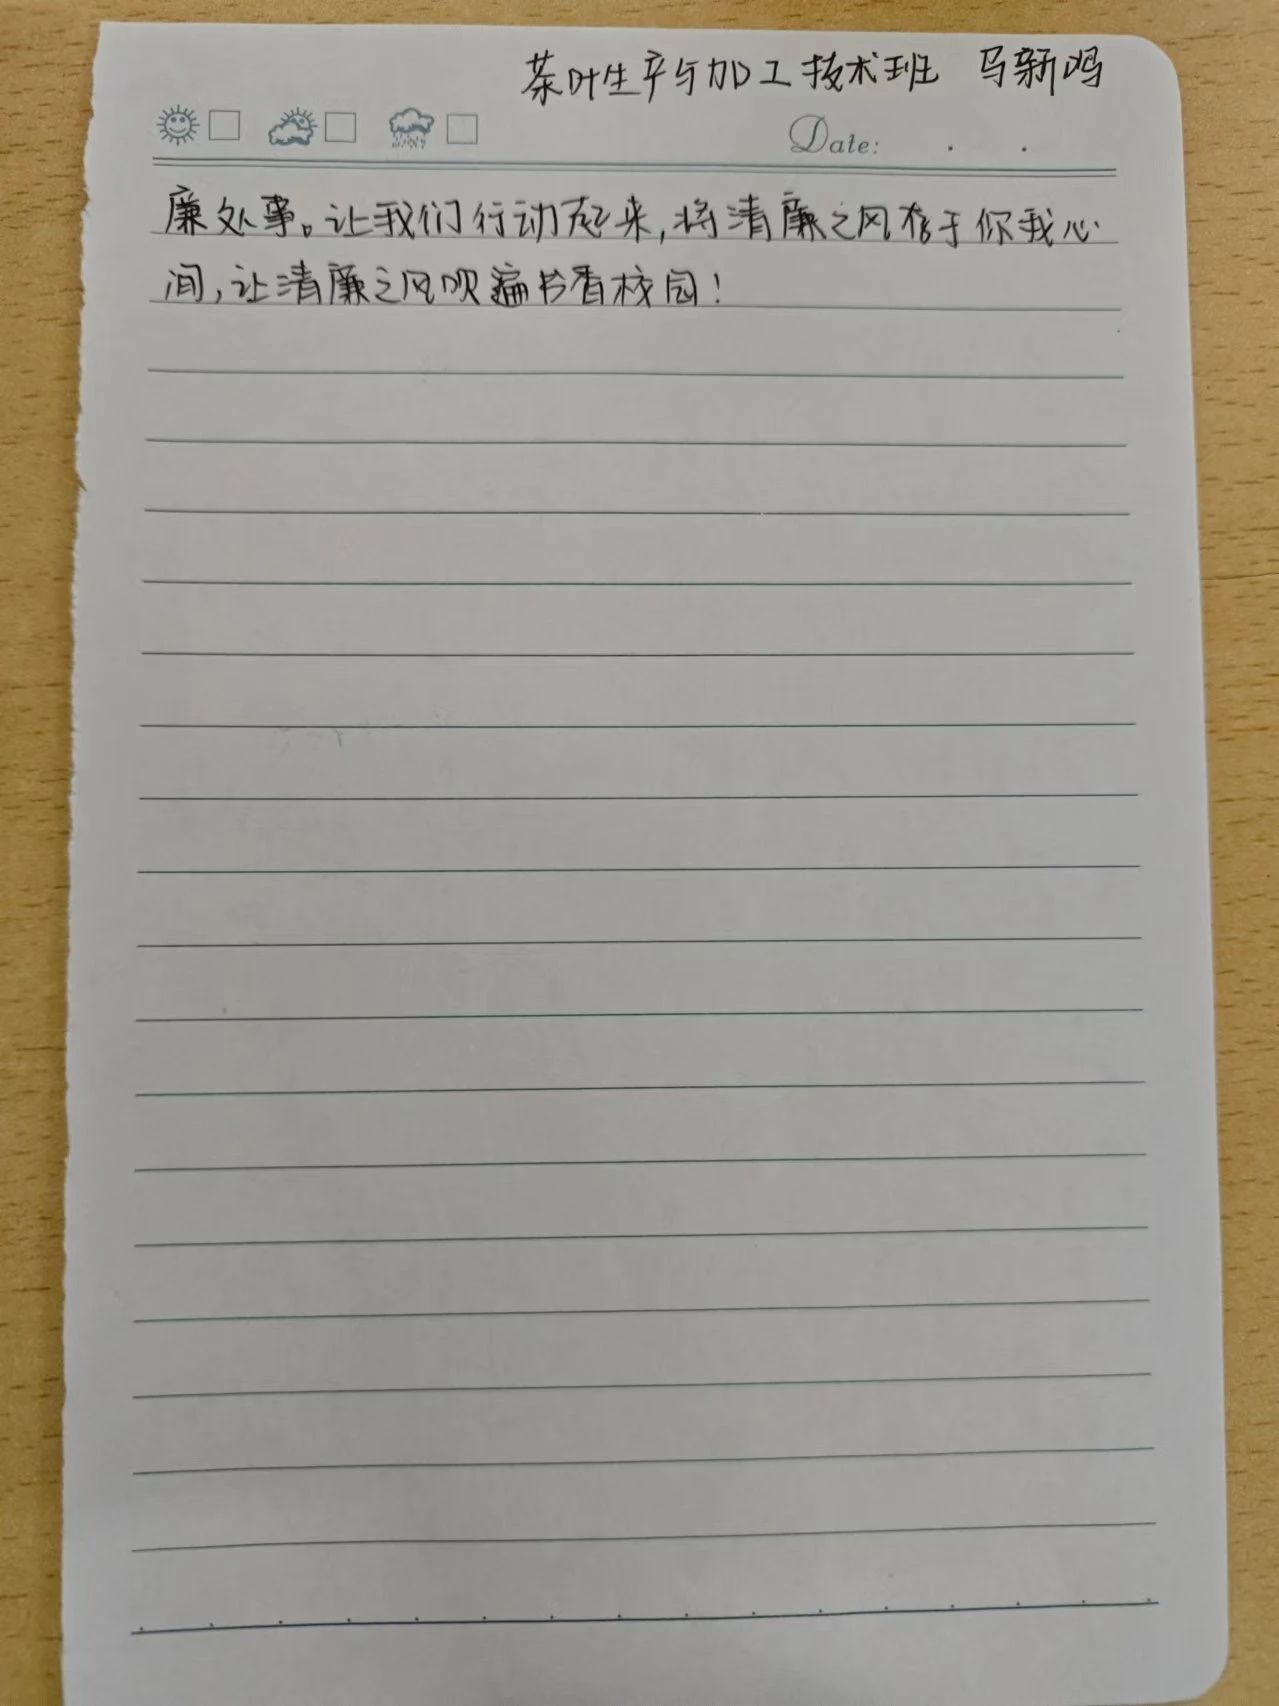 茶叶生产与加工技术班 马新鸣
Date:
廉处事。让我们行动起来,将清廉之风存于你我心
间,让清廉之风吹遍书香校园!